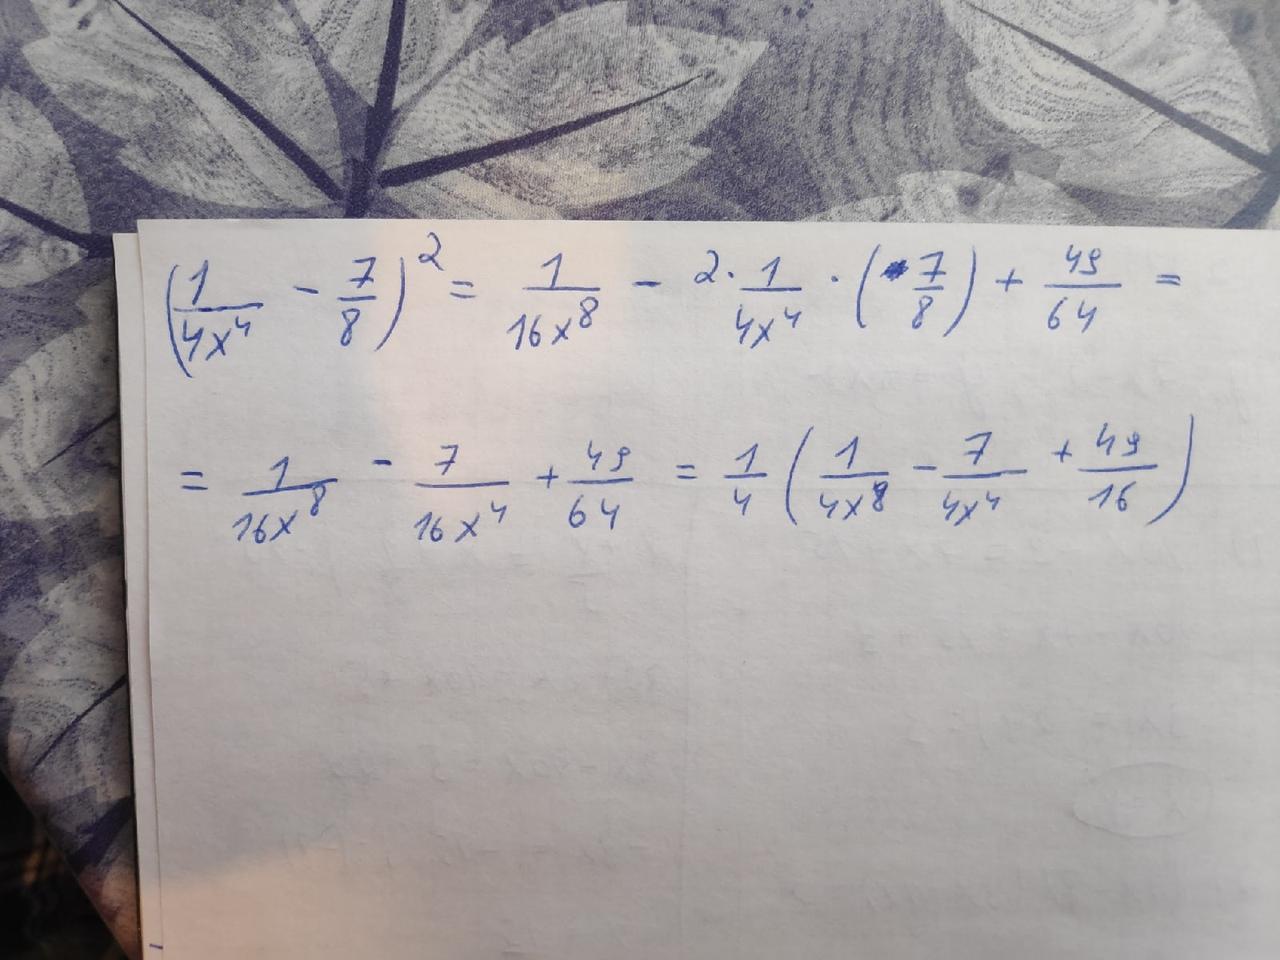 (1/4x⁴ - 7/8)² = 1/16x⁸ - 2 · 1/4x⁴ · (7/8) + 49/64 =
= 1/16x⁸ - 7/16x⁴ + 49/64 = 1/4 (1/4x⁸ - 7/4x⁴ + 49/16)